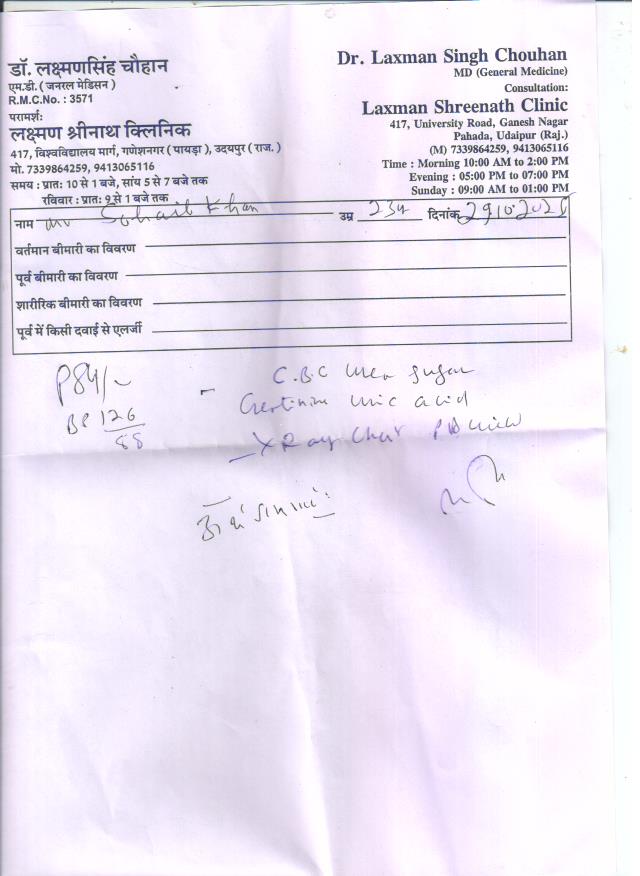 डॉ. लक्ष्मणसिंह चौहान
एम.डी. ( जनरल मेडिसन )
R.M.C.No. : 3571
परामर्श:
लक्ष्मण श्रीनाथ क्लिनिक
417, विश्वविद्यालय मार्ग, गणेशनगर ( पायड़ा ), उदयपुर ( राज. )
मो. 7339864259, 9413065116
समय : प्रात: 10 से 1 बजे, सांय 5 से 7 बजे तक
रविवार : प्रात: 9 से 1 बजे तक
Dr. Laxman Singh Chouhan
MD (General Medicine)
Consultation:
Laxman Shreenath Clinic
417, University Road, Ganesh Nagar
Pahada, Udaipur (Raj.)
(M) 7339864259, 9413065116
Time : Morning 10:00 AM to 2:00 PM
Evening : 05:00 PM to 07:00 PM
Sunday : 09:00 AM to 01:00 PM
नाम Mr Sohail Khan उम्र 23y दिनांक
वर्तमान बीमारी का विवरण
पूर्व बीमारी का विवरण
शारीरिक बीमारी का विवरण
पूर्व में किसी दवाई से एलर्जी
P84/-
BP 126
88
- C.B.C Urea Sugar
Creatinine Uric acid
- X Ray Chest PA View